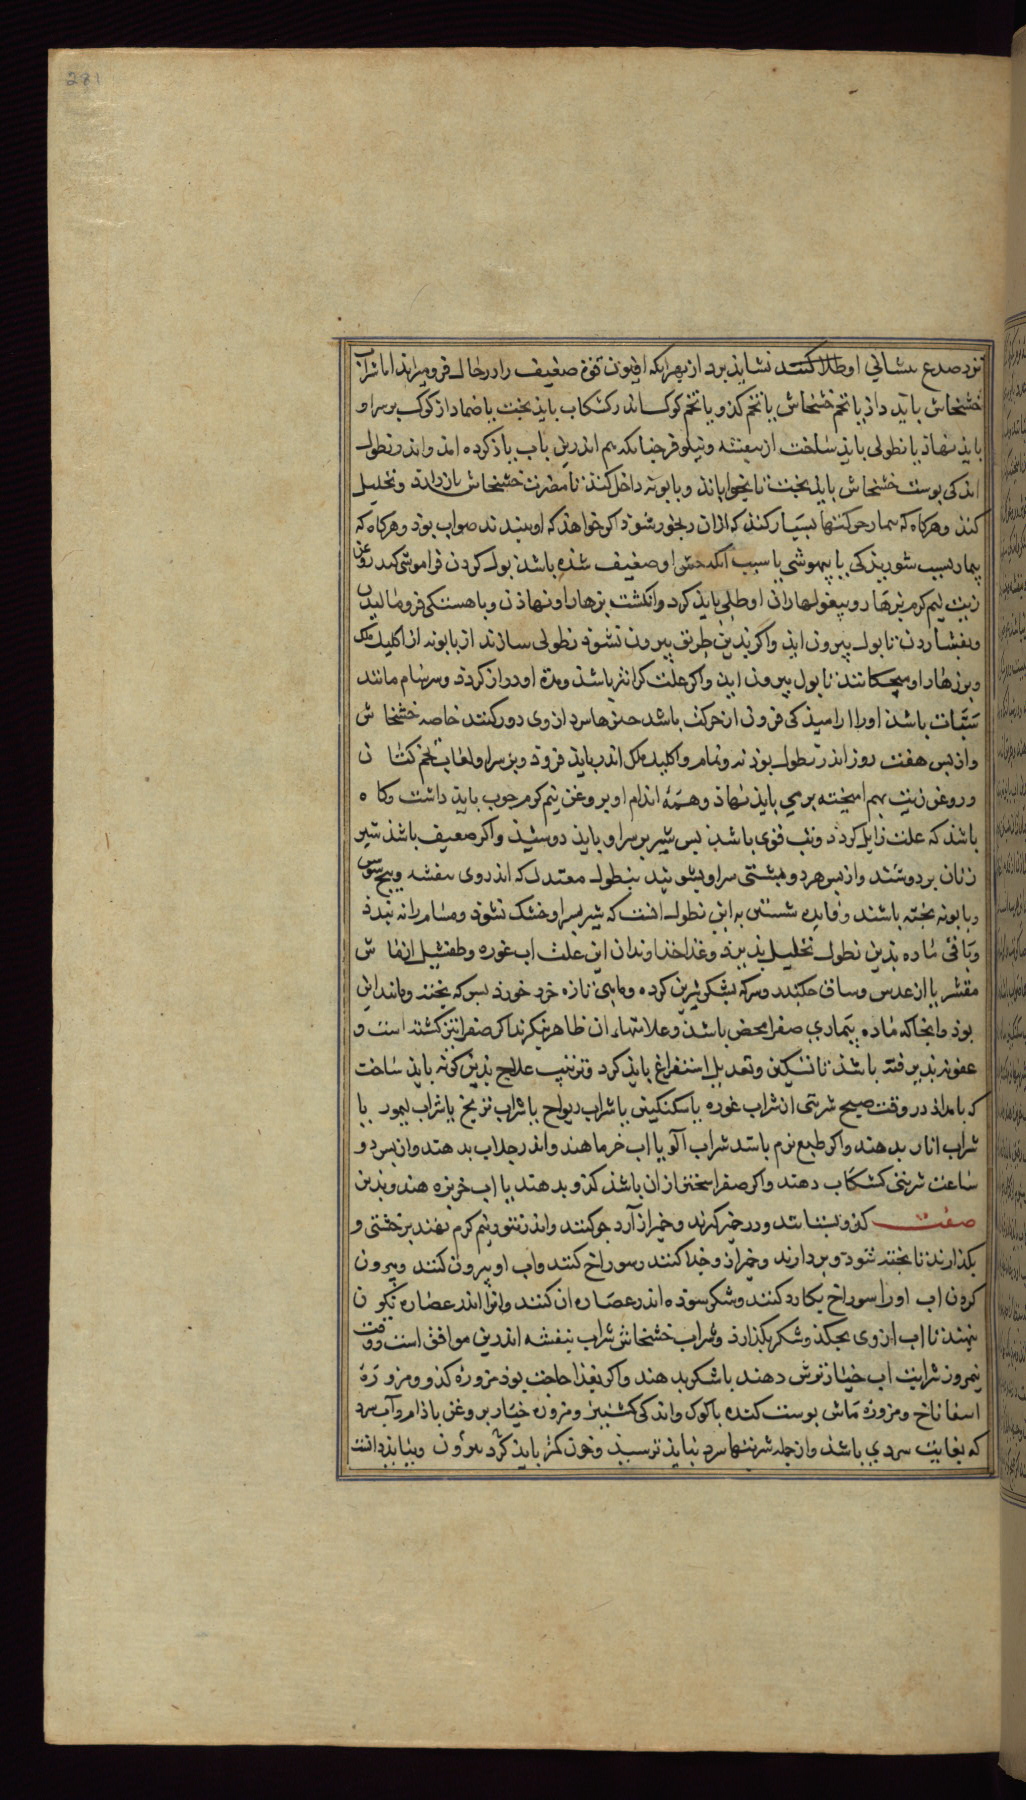 281
نزد صدغ پیشانی او طلا کنند نشاید برد از بهر انکه افیون قوة ضعیف را در حال فرومیراند اما شراب
خشخاش باید داذ یا تخم خشخاش یا تخم کدو یا تخم کوک اندر کشکاب باید پخت یا ضماد از کوک بر سر او
باید نهاذ یا نطولی باید ساخت از بنفشه و نیلوفر چنانکه هم اندرین باب یاذ کرده امذ و اندر نطول
اندکی پوست خشخاش باید پخت تا بخواباند و بابونه داخل کنند تا مضرت خشخاش باز دارد و تحلیل
کند و هرکاه که بیمار حرکتها بسیار کند که از ان رنجور شوذ اکر خواهذ که او ببندند صواب بوذ و هرکاه که
بیمار بسبب شوریذکی یا بیهوشی یا سبب انکه حس او ضعیف شذه باشذ بول کردن فراموش کند روغن
زیت نیم کرم بزهار و بیغولهاء ران او طلی باید کرد و انکشت بزهار او نهاذن و باهستکی فرو مالیدن
و بفشاردن تا بول بیرون ایذ و اکر بذین طریق بیرون نشوذ نطولی سازند از بابونه از اکلیل ملک
و بر زهار او میچکانند تا بول بیرون اید و اکر علت کرانتر باشذ و مدة او دراز کردذ و سرسام مانند
سبات باشذ او را ارامیذکی فزون از حرکت باشد چیزهاء سرد از وی دور کنند خاصه خشخاش
و از پس هفت روز اندر نطول پوذنه و نمام و اکلیل ملک اندر باید فزوذ و بر سر او لعاب تخم کتان
و روغن زیت بهم امیخته برمی باید نهاذ و همه اندام او بروغن نیم کرم چرب باید داشت و کاه
باشذ که علت زایل کردذ و تب قوی باشذ پس شیر بر سر او باید دوشیذ و اکر ضعیف باشذ شیر
زنان بر دوشند و از پس هر دوشیشتی سر او بشویند بنطول معتدل که اندر وی بنفشه و بیخ سوس
و بابونه پخته باشند و فایده شستن به این نطول انست که شیر بر سر او خشک نشوذ و مسام را نه بندذ
و باقی ماده بذین نطول تحلیل پذیرد و غذا خذاوندان این علت اب غوره و طفشیل از ماش
مقشر یا از عدس و ساق چکندر و سرکه بشکر شیرین کرده و ماهی تازه خرد خورذ بسرکه پخته و مانند این
بوذ و انجا که ماده بیماری صفراء محض باشذ و علامتهاء ان ظاهر نیکرند اکر صفرا نیز کشته است و
عفونة پذیرفته باشذ تا تسکین و تعدیل استفراغ باید کرد و ترتیب علاج بذین کونه باید ساخت
که بامداد در وقت صبح شربتی از شراب غوره یا سکنکبین یا شراب ریواج یا شراب نزیخ یا شراب لیمو یا
شراب انار بدهند و اکر طبع نرم باشد شراب آلو یا اب خرما هند و اندر جلاب بدهند و از پس دو
ساعت شربتی کشکاب دهند و اکر صفرا سختر از ان باشذ کذو بدهند یا اب خربزه هند و بذین
صفت کذو بستانند و در خمیر کیرند و خمیر از آرد جو کنند و اندر تنور نیم کرم نهند بر خشتی و
بکذارند تا پخته شوذ و بردارند و خمیر از وی جذا کنند و سوراخ کنند و اب او بیرون کنند و بیرون
کردن اب او را سوراخ بکارد کنند و شکر سوذه اندر عصاره ان کنند و انرا اندر عصاره نکون
بنهند تا اب از وی بچکذ و شکر بکذارذ و شراب خشخاش شراب بنفشه اندرین موافق است و وقت
نیمروز شرابیت اب خیار ترش دهند با شکر بدهند و اکر بغذا حاجت بوذ مزورة کذو و مزورة
اسفاناخ و مزورة ماش پوست کنده با کوک و اندکی کشنیز و مزوره خیار بروغن باذام و آب سرد
که بغایت سردی باشذ و از جمله شربتهاء سرد نباید ترسیذ و خون کمتر باید کرد بیرون و بباید دانست